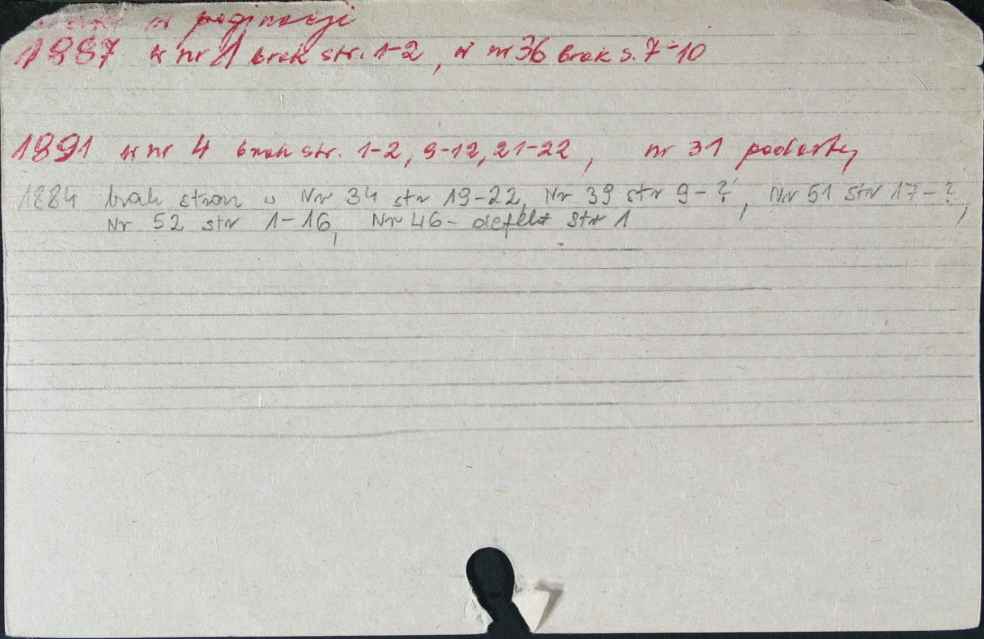 w paginacji
1887 w nr 1 brak str. 1-2, w nr 36 brak s. 7-10
1891 w nr 4 brak str. 1-2, 9-12, 21-22, nr 31 podarty
1884 brak stron w Nr 34 str 19-22, Nr 39 str 9-?, Nr 51 str 17-?,
Nr 52 str 1-16, Nr 46 - defekt str 1